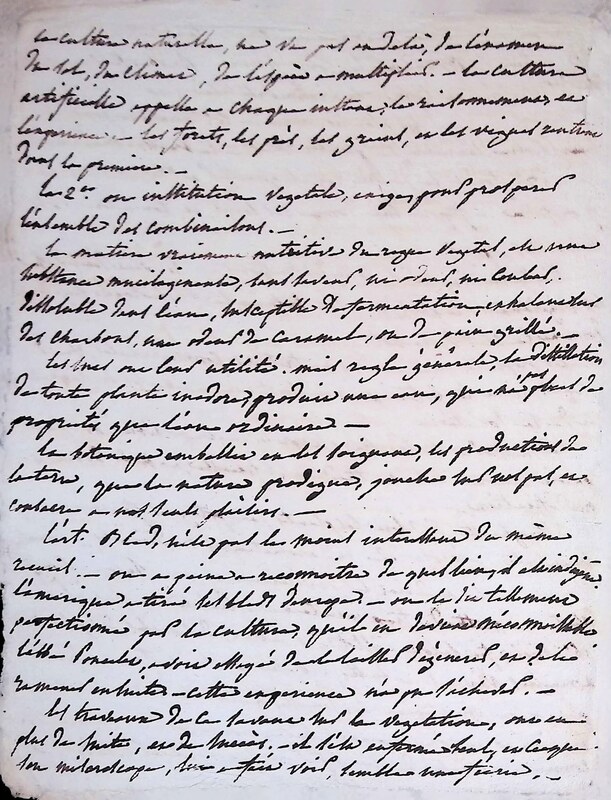 la culture naturelle, ne va pas au delà, de l'examen
du sol, du climat, de l'espèce a multiplier. - la culture
artificielle appelle a chaque instans, le raisonnement, et
l'experience. - les forets, les prés, les grains, et les vignes rentrent
dans la premiere. -
la 2.e ou institution vegetale, exige, pour prosperer
l'ensemble des combinaisons. -
la matiere vraiment nutritive du regne vegetal, est une
substance mucilagineuse, sans saveur, ni odeur, ni couleur.
dissoluble dans l'eau, susceptible de fermentation, exhalant sur
des charbons, une odeur de caramel, ou de pain grillé. -
les sucs ont leur utilité. mais regle générale, la distillation
de toute plante inodore, produit une eau, qui n'a pas plus de
propriétés que l'eau ordinaire -
la botanique embellit en les soignant, les productions de
la terre, que la nature prodigue, jonche sur nos pas, et
consacre a nos seuls plaisirs. -
l'art. Bled, n'est pas le moins interessant du même
recueil. - on a peine a reconnoitre de quel lieu, il est indigene
l'amerique a tiré ses bleds d'europe. - on le dit tellement
perfectionné par la culture, qu'il en devient meconnoissable
l'abbé Poncelet, avoit essayé de le laisser dégénerer, et de le
ramener ensuite - cette experience n'a pu s'achever. -
les travaux de ce savant sur la vegetation, ont eu
plus de suite, et de succès. - il s'est enfermé seul, et ce que
son microscope, lui a fait voir, semble une féerie. -